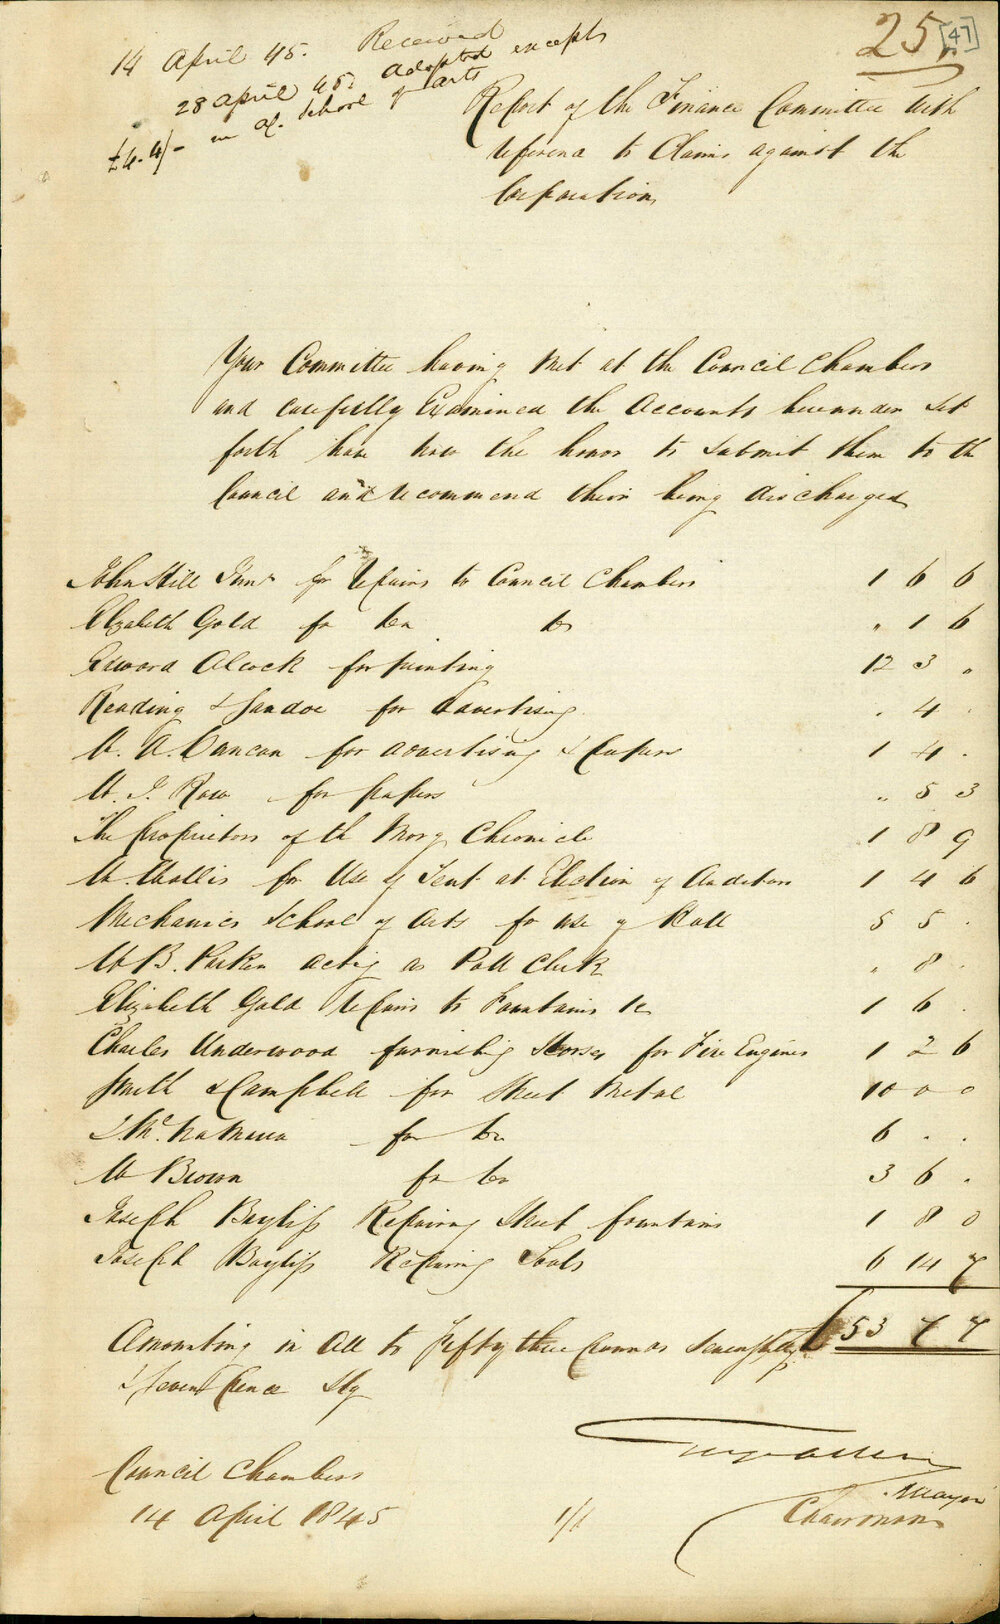 25. [47]
14 April 45. Received
28 April 45. Adopted except
£4.4/- in a/c. School of Arts
Report of the Finance Committee with
reference to Claims against the
Corporation
Your Committee having met at the Council Chambers
and carefully Examined the Accounts hereunder set
forth have now the honor to submit them to the
Council and recommend their being discharged
John Hill Junr for repairs to Council Chambers 1 6 6
Elizabeth Gold for do do " 1 6
Edward Alcock for painting 12 3 "
Reading & Sandoe for advertising . 4 .
W. A. Duncan for advertising & papers 1 4 .
W. J. Row for papers " 5 3
The proprietors of th Morg Chronicle 1 8 9
W. Wallis for Use of Tent at Election of Auditors 1 4 6
Mechanics School of Arts for use of Hall 5 5 .
W B. Parker acting as Poll Clerk " 8 .
Elizabeth Gold repairs to Fountains &c 1 6 .
Charles Underwood furnishing Horses for Fire Engines 1 2 6
Smith & Campbell for Street Metal 10 0 0
J McNamara for do 6 . .
W Brown for do 3 6 .
Joseph Bayliss Repairing Street fountains 1 8 0
Joseph Bayliss Repairing Tools 6 14 7
Amounting in all to Fifty three pounds Seven shgs £53 7 7
& Seven Pence Stg
Council Chambers
14 April 1845
Mayor
Chairman